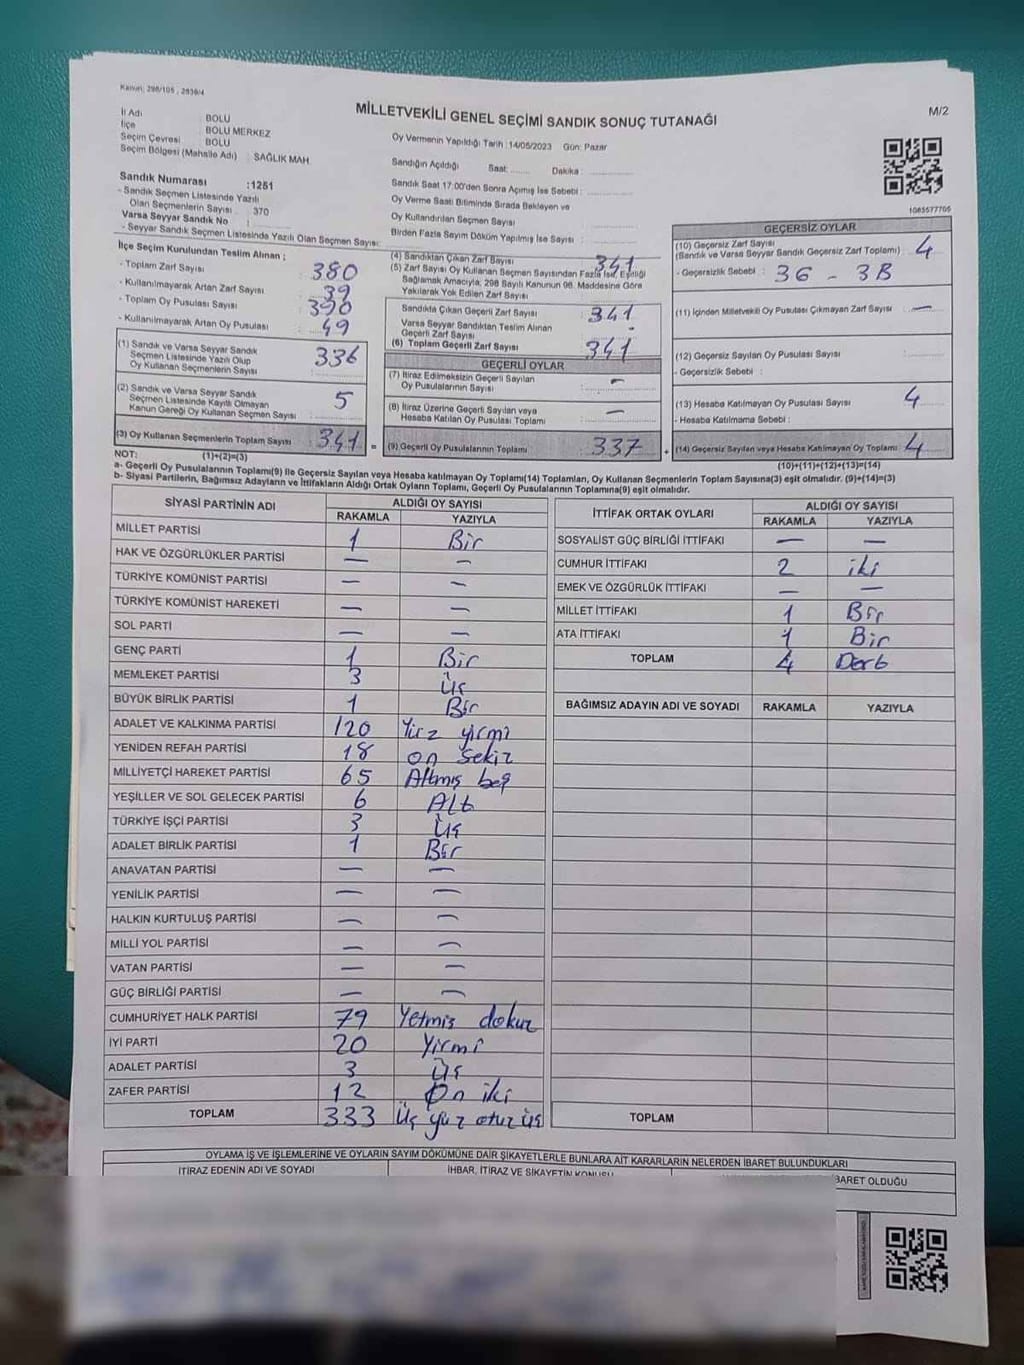 Kanun: 298/105 , 2839/4
MİLLETVEKİLİ GENEL SEÇİMİ SANDIK SONUÇ TUTANAĞI
M/2
İl Adı : BOLU
İlçe : BOLU MERKEZ
Seçim Çevresi : BOLU
Seçim Bölgesi (Mahalle Adı) : SAĞLIK MAH.
Sandık Numarası :1251
- Sandık Seçmen Listesinde Yazılı
Olan Seçmenlerin Sayısı : 370
Varsa Seyyar Sandık No :
- Seyyar Sandık Seçmen Listesinde Yazılı Olan Seçmen Sayısı:
Oy Vermenin Yapıldığı Tarih :14/05/2023 Gün: Pazar
Sandığın Açıldığı Saat: Dakika :
Sandık Saat 17:00'den Sonra Açılmış İse Sebebi :
Oy Verme Saati Bitiminde Sırada Bekleyen ve
Oy Kullandırılan Seçmen Sayısı :
Birden Fazla Sayım Döküm Yapılmış İse Sayısı :
1083577705
İlçe Seçim Kurulundan Teslim Alınan ;
- Toplam Zarf Sayısı : 380
- Kullanılmayarak Artan Zarf Sayısı : 39
- Toplam Oy Pusulası Sayısı : 390
- Kullanılmayarak Artan Oy Pusulası : 49
(1) Sandık ve Varsa Seyyar Sandık
Seçmen Listesinde Yazılı Olup
Oy Kullanan Seçmenlerin Sayısı : 336
(2) Sandık ve Varsa Seyyar Sandık
Seçmen Listesinde Kayıtlı Olmayan
Kanun Gereği Oy Kullanan Seçmen Sayısı : 5
(3) Oy Kullanan Seçmenlerin Toplam Sayısı : 341 =
(4) Sandıktan Çıkan Zarf Sayısı : 341
(5) Zarf Sayısı Oy Kullanan Seçmen Sayısından Fazla İse, Eşitliği
Sağlamak Amacıyla, 298 Sayılı Kanunun 98. Maddesine Göre
Yakılarak Yok Edilen Zarf Sayısı :
Sandıkta Çıkan Geçerli Zarf Sayısı : 341
Varsa Seyyar Sandıktan Teslim Alınan
Geçerli Zarf Sayısı : -
(6) Toplam Geçerli Zarf Sayısı : 341
GEÇERLİ OYLAR
(7) İtiraz Edilmeksizin Geçerli Sayılan
Oy Pusulalarının Sayısı : -
(8) İtiraz Üzerine Geçerli Sayılan veya
Hesaba Katılan Oy Pusulaları Toplamı : -
(9) Geçerli Oy Pusulalarının Toplamı : 337 +
GEÇERSİZ OYLAR
(10) Geçersiz Zarf Sayısı
(Sandık ve Varsa Seyyar Sandık Geçersiz Zarf Toplamı) : 4
- Geçersizlik Sebebi : 3G - 3B
(11) İçinden Milletvekili Oy Pusulası Çıkmayan Zarf Sayısı : -
(12) Geçersiz Sayılan Oy Pusulası Sayısı :
- Geçersizlik Sebebi :
(13) Hesaba Katılmayan Oy Pusulası Sayısı : 4
- Hesaba Katılmama Sebebi :
(14) Geçersiz Sayılan veya Hesaba Katılmayan Oy Toplamı : 4
NOT: (1)+(2)=(3)
(10)+(11)+(12)+(13)=(14)
a- Geçerli Oy Pusulalarının Toplamı(9) ile Geçersiz Sayılan veya Hesaba katılmayan Oy Toplamı(14) Toplamları, Oy Kullanan Seçmenlerin Toplam Sayısına(3) eşit olmalıdır. (9)+(14)=(3)
b- Siyasi Partilerin, Bağımsız Adayların ve İttifakların Aldığı Ortak Oyların Toplamı, Geçerli Oy Pusulalarının Toplamına(9) eşit olmalıdır.
SİYASİ PARTİNİN ADI ALDIĞI OY SAYISI
RAKAMLA YAZIYLA
MİLLET PARTİSİ 1 Bir
HAK VE ÖZGÜRLÜKLER PARTİSİ - -
TÜRKİYE KOMÜNİST PARTİSİ - -
TÜRKİYE KOMÜNİST HAREKETİ - -
SOL PARTİ - -
GENÇ PARTİ 1 Bir
MEMLEKET PARTİSİ 3 Üç
BÜYÜK BİRLİK PARTİSİ 1 Bir
ADALET VE KALKINMA PARTİSİ 120 Yüz yirmi
YENİDEN REFAH PARTİSİ 18 on sekiz
MİLLİYETÇİ HAREKET PARTİSİ 65 Altmış beş
YEŞİLLER VE SOL GELECEK PARTİSİ 6 Altı
TÜRKİYE İŞÇİ PARTİSİ 3 Üç
ADALET BİRLİK PARTİSİ 1 Bir
ANAVATAN PARTİSİ - -
YENİLİK PARTİSİ - -
HALKIN KURTULUŞ PARTİSİ - -
MİLLİ YOL PARTİSİ - -
VATAN PARTİSİ - -
GÜÇ BİRLİĞİ PARTİSİ - -
CUMHURİYET HALK PARTİSİ 79 Yetmiş dokuz
İYİ PARTİ 20 Yirmi
ADALET PARTİSİ 3 Üç
ZAFER PARTİSİ 12 On iki
TOPLAM 333 Üç yüz otuz üç
İTTİFAK ORTAK OYLARI ALDIĞI OY SAYISI
RAKAMLA YAZIYLA
SOSYALİST GÜÇ BİRLİĞİ İTTİFAKI - -
CUMHUR İTTİFAKI 2 iki
EMEK VE ÖZGÜRLÜK İTTİFAKI - -
MİLLET İTTİFAKI 1 Bir
ATA İTTİFAKI 1 Bir
TOPLAM 4 Dört
BAĞIMSIZ ADAYIN ADI VE SOYADI RAKAMLA YAZIYLA
TOPLAM
OYLAMA İŞ VE İŞLEMLERİNE VE OYLARIN SAYIM DÖKÜMÜNE DAİR ŞİKAYETLERLE BUNLARA AİT KARARLARIN NELERDEN İBARET BULUNDUKLARI
İTİRAZ EDENİN ADI VE SOYADI İHBAR, İTİRAZ VE ŞİKAYETİN KONUSU BARET OLDUĞU